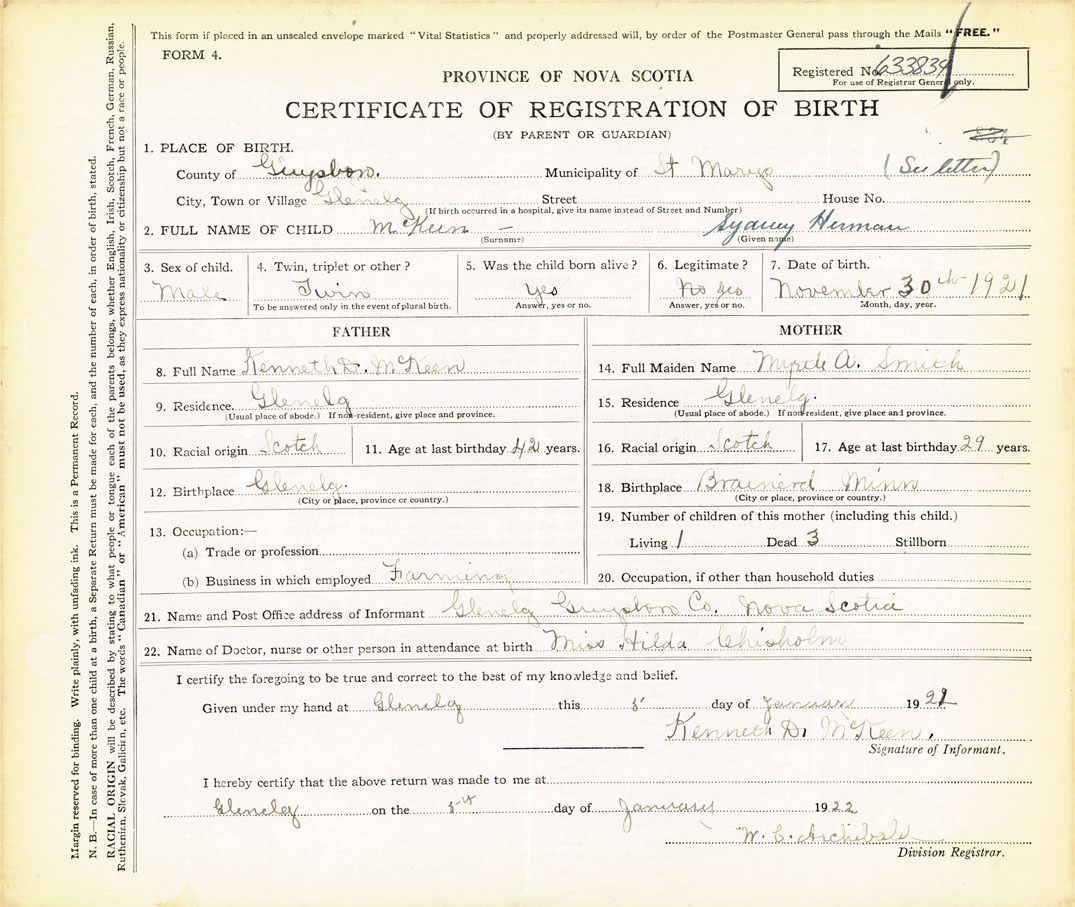 This form if placed in an unsealed envelope marked "Vital Statistics" and properly addressed will, by order of the Postmaster General pass through the Mails "FREE."
FORM 4.
Registered No. 633834
For use of Registrar General only.
PROVINCE OF NOVA SCOTIA
CERTIFICATE OF REGISTRATION OF BIRTH
(BY PARENT OR GUARDIAN)
1. PLACE OF BIRTH.
(See letter)
County of Guysboro. Municipality of St Marys
City, Town or Village Glenelg Street House No.
(If birth occurred in a hospital, give its name instead of Street and Number)
2. FULL NAME OF CHILD McKeen – Sydney Herman
(Surname) (Given name)
3. Sex of child. 4. Twin, triplet or other? 5. Was the child born alive? 6. Legitimate? 7. Date of birth.
Male Twin Yes No yes November 30th 1921
To be answered only in the event of plural birth. Answer, yes or no. Answer, yes or no. Month, day, year.
FATHER MOTHER
8. Full Name Kenneth D. McKeen 14. Full Maiden Name Myrtle A. Smith
9. Residence. Glenelg 15. Residence Glenelg.
(Usual place of abode.) If non-resident, give place and province. (Usual place of abode.) If non-resident, give place and province.
10. Racial origin Scotch 11. Age at last birthday 42 years. 16. Racial origin Scotch 17. Age at last birthday 29 years.
12. Birthplace Glenelg. 18. Birthplace Brainerd Minn
(City or place, province or country.) (City or place, province or country.)
13. Occupation:— 19. Number of children of this mother (including this child.)
(a) Trade or profession Living 1 Dead 3 Stillborn
(b) Business in which employed Farming 20. Occupation, if other than household duties
21. Name and Post Office address of Informant Glenelg Guysboro Co. Nova Scotia
22. Name of Doctor, nurse or other person in attendance at birth Miss Hilda Chisholm
I certify the foregoing to be true and correct to the best of my knowledge and belief.
Given under my hand at Glenelg this 5 day of January 192
Kenneth D. McKeen.
Signature of Informant.
I hereby certify that the above return was made to me at
Glenelg on the 5th day of January 1922
W. C. Archibald
Division Registrar.
Margin reserved for binding. Write plainly, with unfading ink. This is a Permanent Record.
N. B.—In case of more than one child at a birth, a Separate Return must be made for each, and the number of each, in order of birth, stated.
RACIAL ORIGIN will be described by stating to what people or tongue each of the parents belongs, whether English, Irish, Scotch, French, German, Russian,
Ruthenian, Slovak, Galician, etc. The words "Canadian" or "American" must not be used, as they express nationality or citizenship but not a race or people.